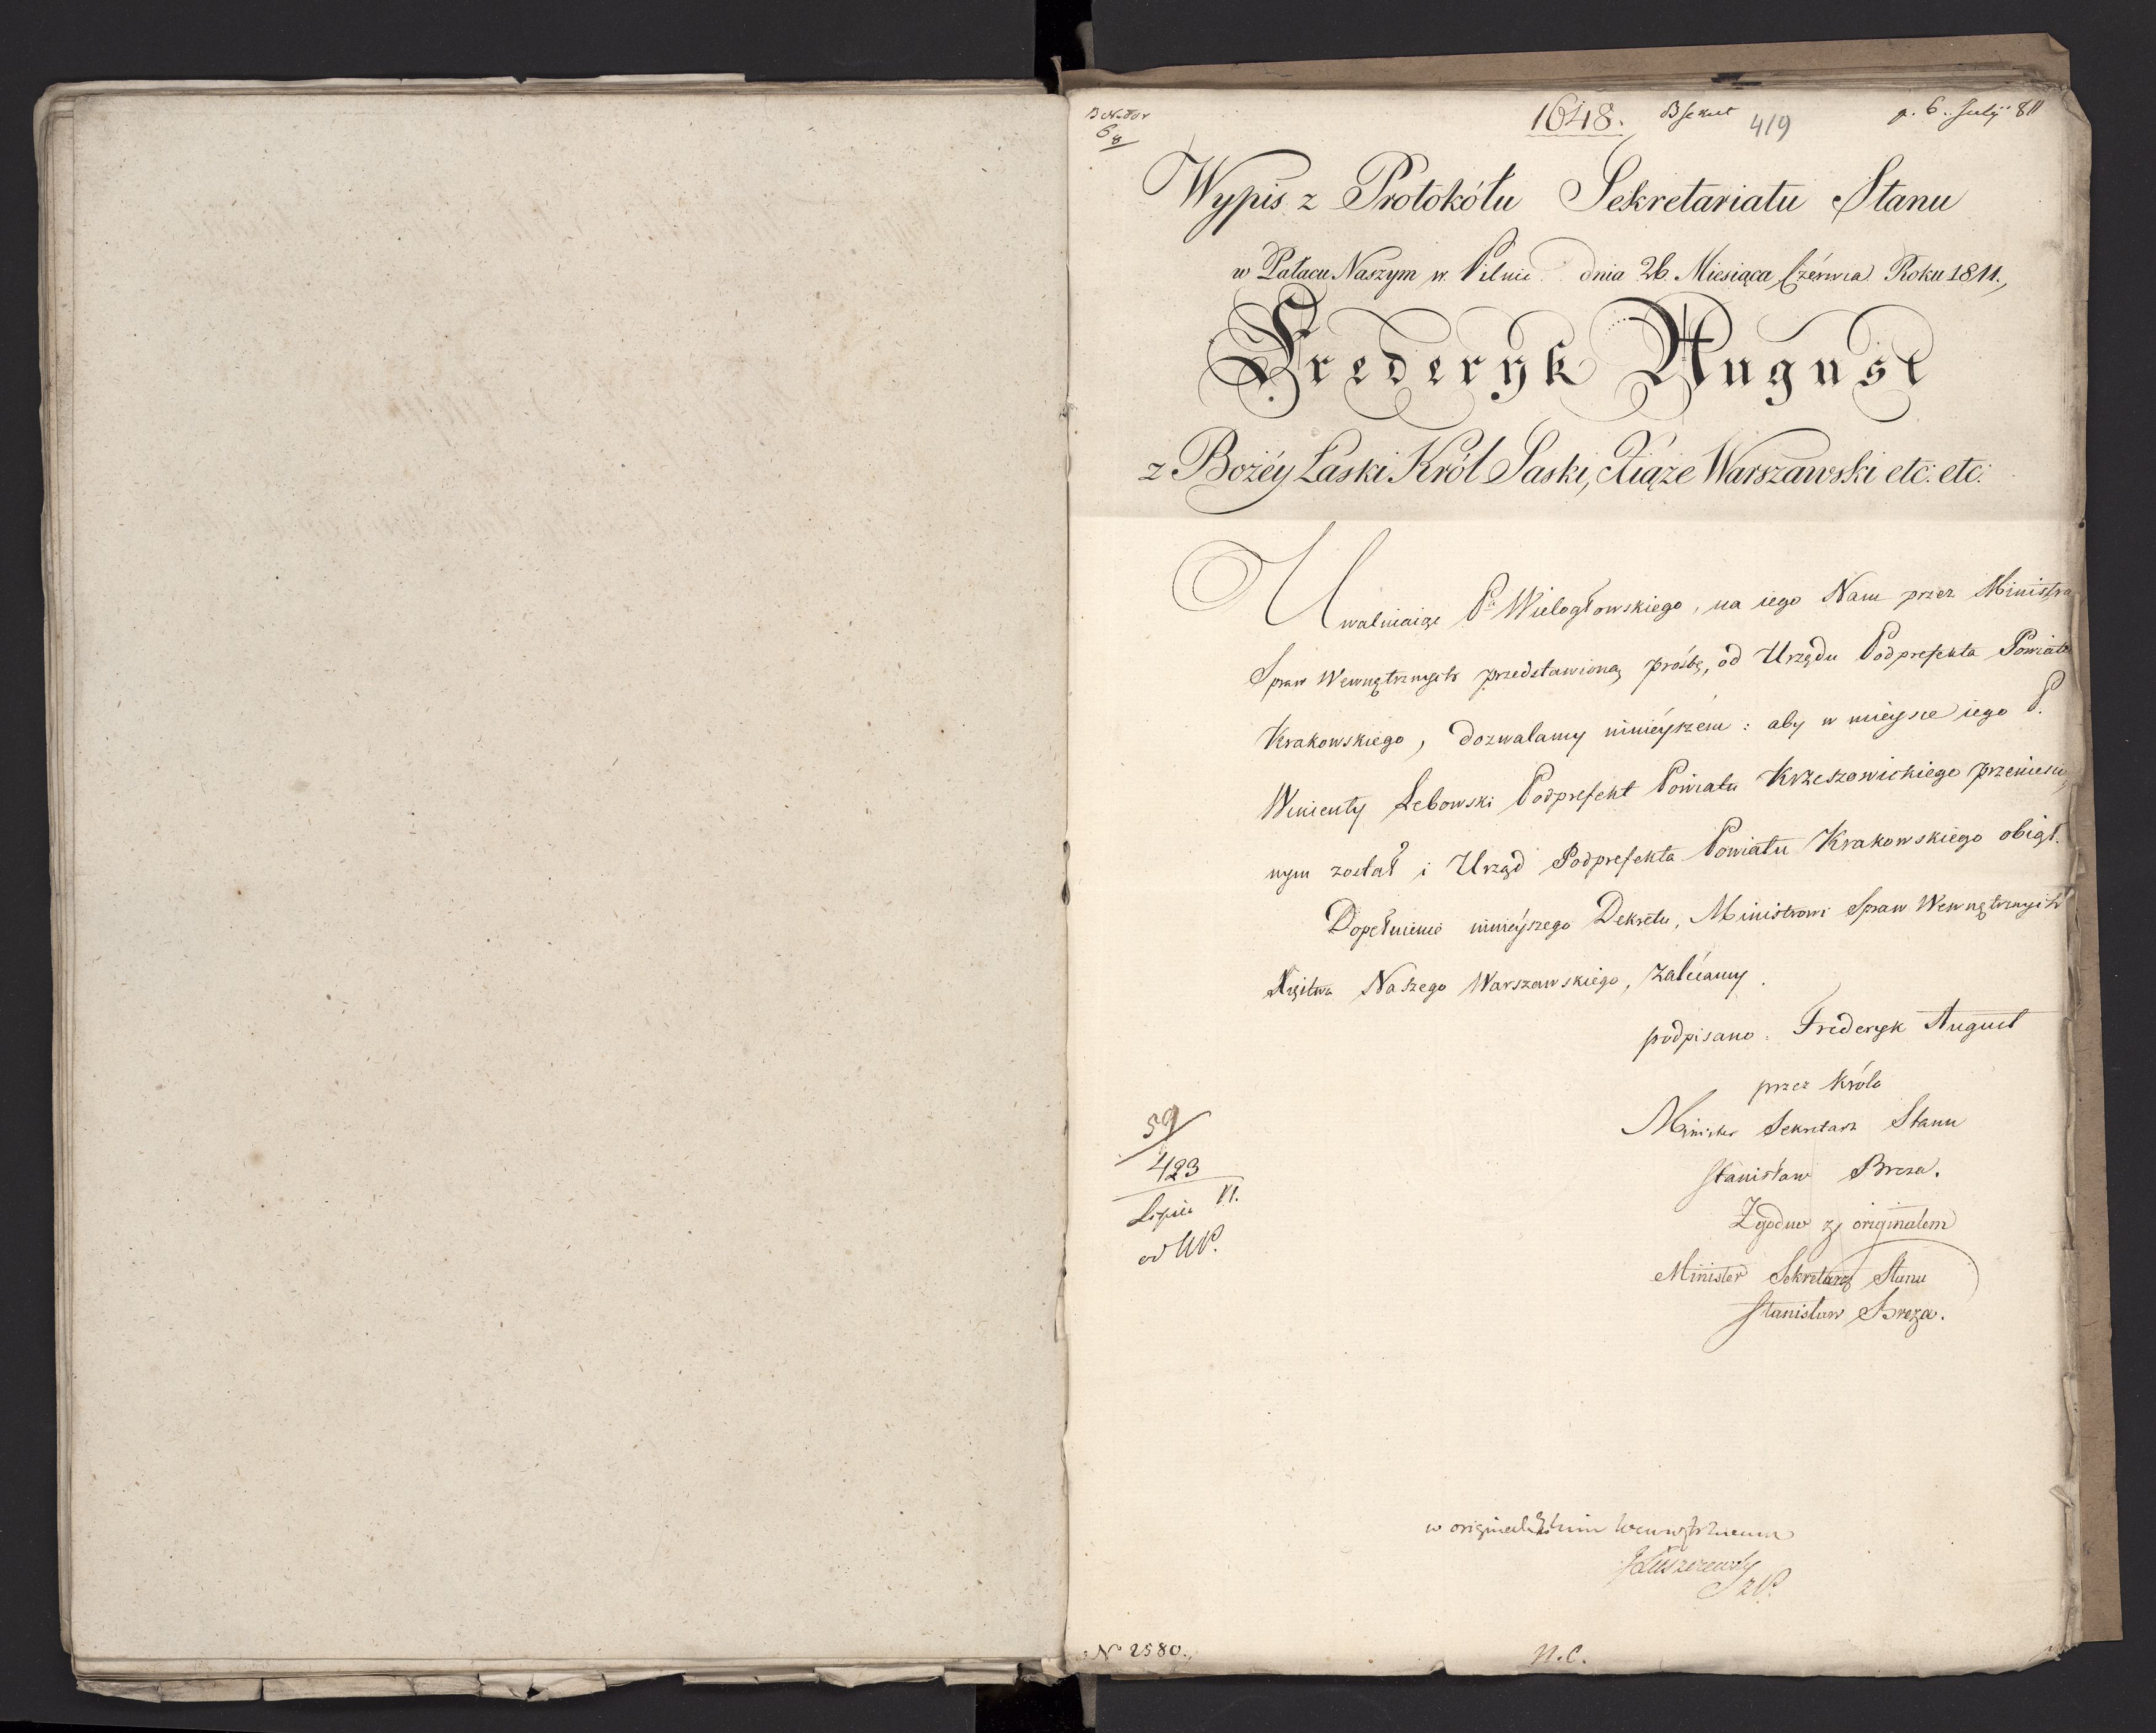 1648. 419 p. 6. July 811
6/8
Wypis z Protokółu Sekretariatu Stanu
w Pałacu Naszym w Pilnic dnia 26. Miesiąca Czérwca Roku 1811.,
Frederyk August
z Bożéy Łaski Król Saski, Xiąże Warszawski etc: etc:
Uwalniaiąc Pa Wielogłowskiego, na iego Nam przez Ministra
Spraw Wewnętrznych przedstawioną prośbę, od Urzędu Podprefekta Powiatu
Krakowskiego, dozwalamy ninieyszém: aby w mieysce iego P.
Wincenty Łebowski Podprefekt Powiatu Krzeszowickiego przeniesio-
nym został i Urząd Podprefekta Powiatu Krakowskiego obiął.
Dopełnienie ninieyszego Dekretu, Ministrowi Spraw Wewnętrznych
Xięstwa Naszego Warszawskiego, zalécamy.
podpisano: Frederyk August
przez Króla
Minister Sekretarz Stanu
Stanisław Breza.
Zgodno z originałem
Minister Sekretarz Stanu
Stanisław Breza.
59/
423
Lipca 11.
od
w originale
Łuszczewsky
No 2580.
N.C.